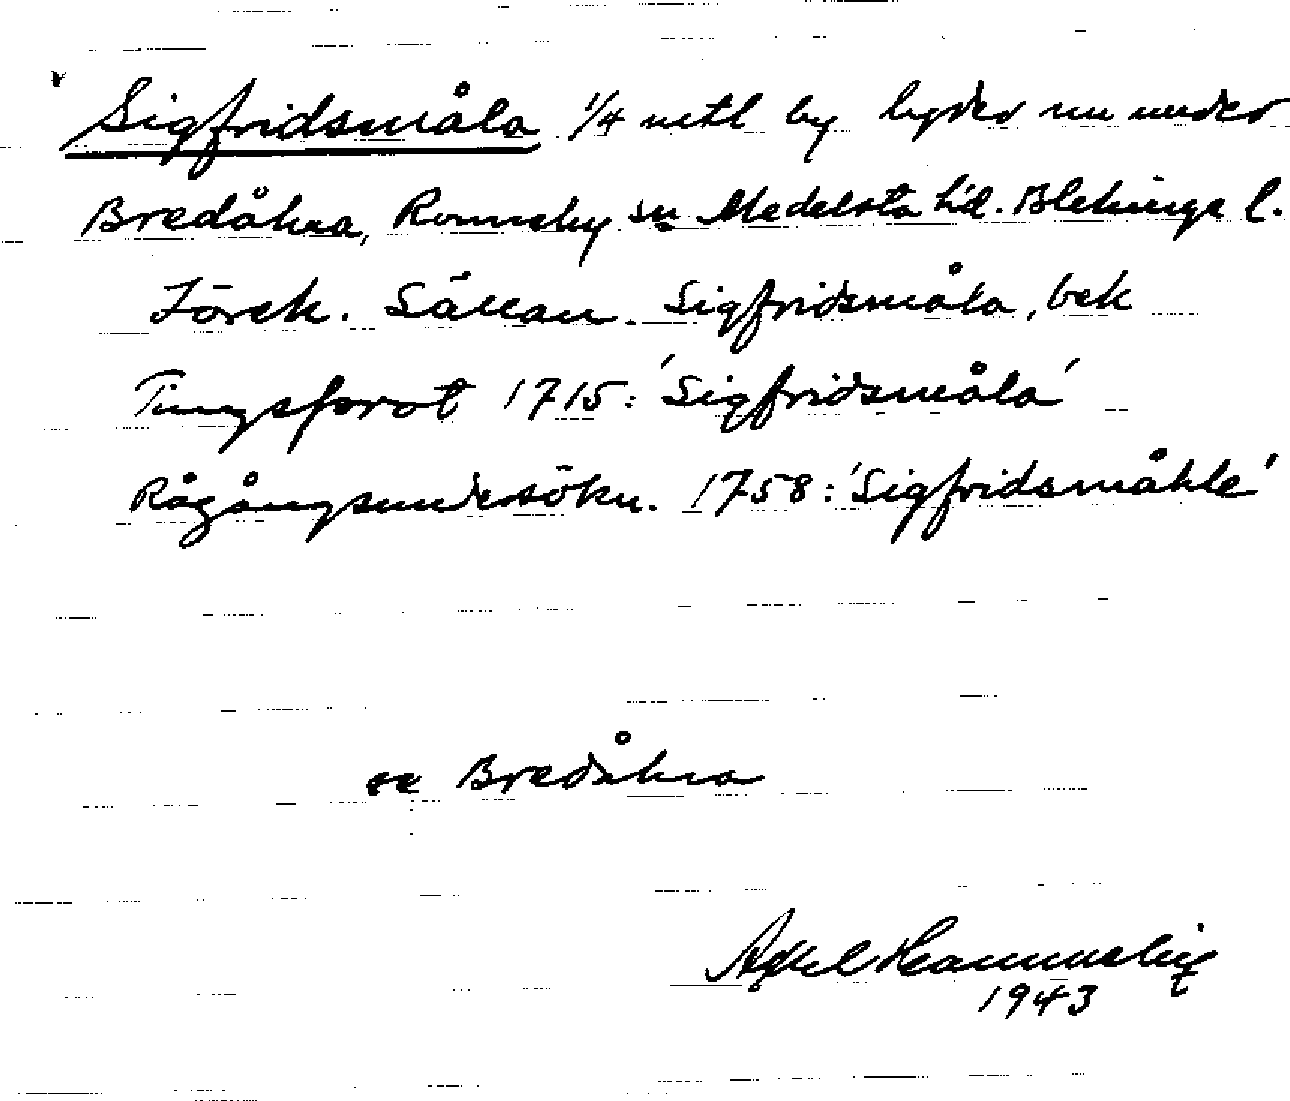 Sigfridsmåla 1/4 mtl by lyder nu under
Bredåkra, Ronneby sn Medelsta hd. Blekinge l.
Förek. Sällan. Sigfridsmåla, bek
Tingsprot 1715: 'Sigfridsmåla'
Rågångsundersökn. 1758: 'Sigfridsmåhle'
se Bredåkra
Axel Hammerby
1943